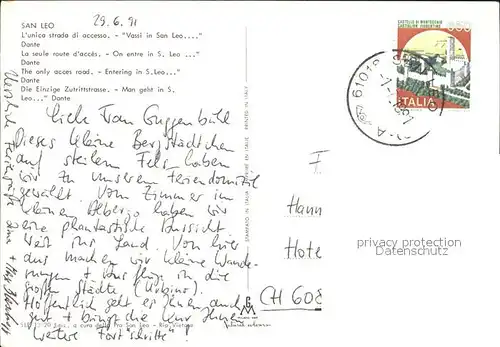 29.6.91
SAN LEO
L'unica strada di accesso. - "Vassi in San Leo...."
Dante
La seule route d'accès. - On entre in S. Leo ..."
Dante
The only acces road. - Entering in S. Leo..."
Dante
Die Einzige Zutrittstrasse. - Man geht in S.
Leo..." Dante
Liebe Frau Guggenbühl
Dieses kleine Bergstädtchen
auf steilem Fels haben
wir zu unserem Feriendomizil
gewählt. Vom Zimmer im
kleinen Albergo haben wir
eine phantastische Aussicht
weit ins Land. Von hier
aus machen wir kleine Wande-
rungen + Ausflüge in die
große Städte (Urbino).
Hoffentlich geht es Ihnen auch
gut + bringt die Kur Ihnen
weitere "Fortschritte"
Herzliche Feriengrüße
a cura della Pro San Leo - Rip. Vietata
STAMPATO IN ITALIA
PRINTED IN ITALY
CASTELLO DI MONTECCHIO
CASTIGLION FIORENTINO
650
ITALIA
61018
F.
Hann
Hote
CH 608
privacy protection
Datenschutz